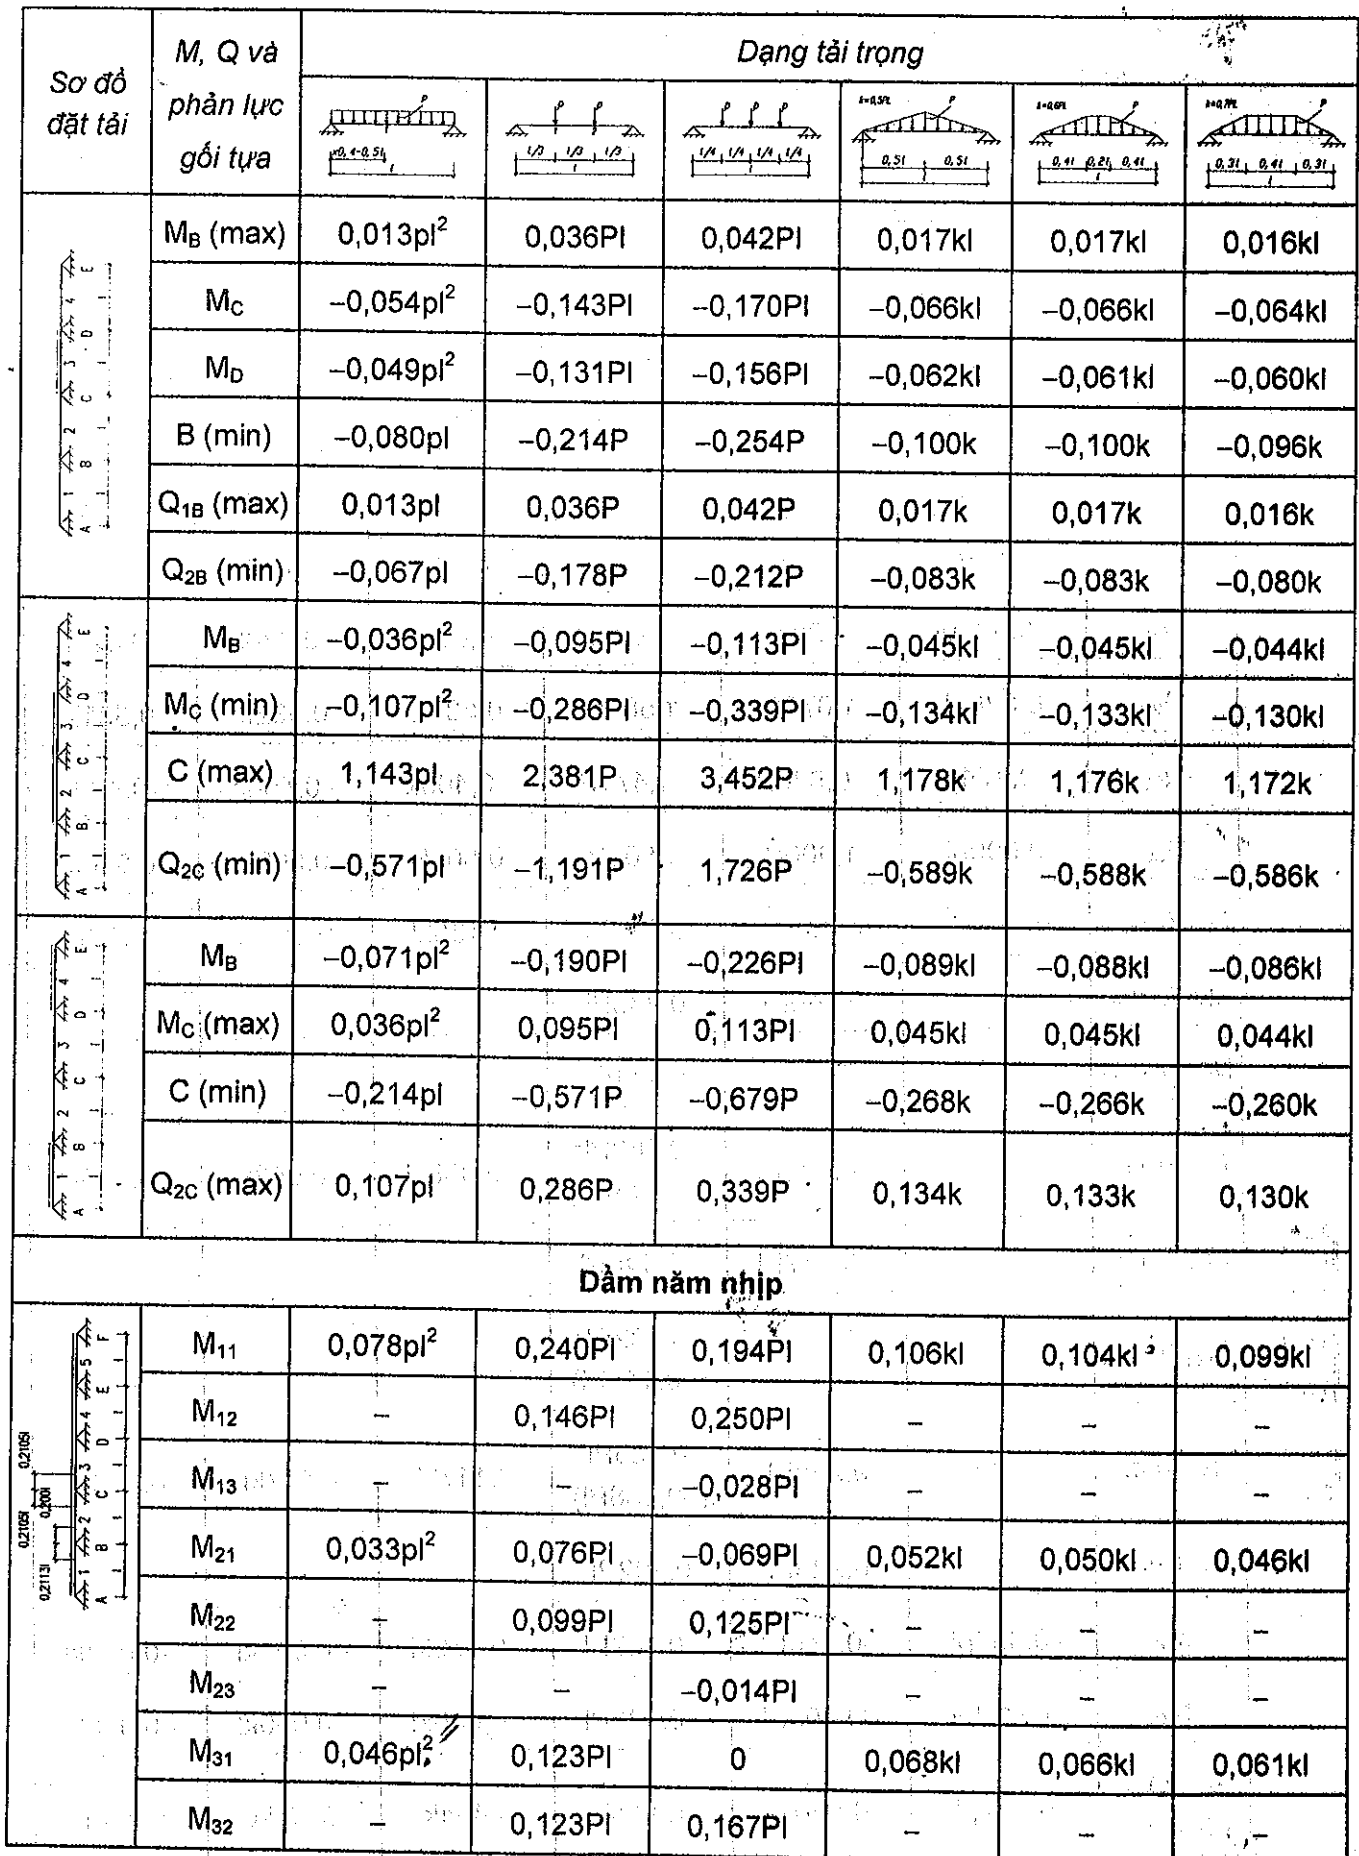 Sơ đồ đặt tải | M, Q và phản lực gối tựa | Dạng tải trọng
p | p | p | k=0,5PL p | k=0,6PL p | k=0,7PL p
x0,4-0,5l | l/3 l/3 l/3 | l/4 l/4 l/4 l/4 | 0,5l 0,5l | 0,4l 0,2l 0,4l | 0,3l 0,4l 0,3l
l | l | l | l | l | l
A 1 B 2 C 3 D 4 E
M_B (max) | 0,013pl² | 0,036Pl | 0,042Pl | 0,017kl | 0,017kl | 0,016kl
M_C | –0,054pl² | –0,143Pl | –0,170Pl | –0,066kl | –0,066kl | –0,064kl
M_D | –0,049pl² | –0,131Pl | –0,156Pl | –0,062kl | –0,061kl | –0,060kl
B (min) | –0,080pl | –0,214P | –0,254P | –0,100k | –0,100k | –0,096k
Q_1B (max) | 0,013pl | 0,036P | 0,042P | 0,017k | 0,017k | 0,016k
Q_2B (min) | –0,067pl | –0,178P | –0,212P | –0,083k | –0,083k | –0,080k
A 1 B 2 C 3 D 4 E
M_B | –0,036pl² | –0,095Pl | –0,113Pl | –0,045kl | –0,045kl | –0,044kl
M_C (min) | –0,107pl² | –0,286Pl | –0,339Pl | –0,134kl | –0,133kl | –0,130kl
C (max) | 1,143pl | 2,381P | 3,452P | 1,178k | 1,176k | 1,172k
Q_2C (min) | –0,571pl | –1,191P | 1,726P | –0,589k | –0,588k | –0,586k
A 1 B 2 C 3 D 4 E
M_B | –0,071pl² | –0,190Pl | –0,226Pl | –0,089kl | –0,088kl | –0,086kl
M_C (max) | 0,036pl² | 0,095Pl | 0,113Pl | 0,045kl | 0,045kl | 0,044kl
C (min) | –0,214pl | –0,571P | –0,679P | –0,268k | –0,266k | –0,260k
Q_2C (max) | 0,107pl | 0,286P | 0,339P | 0,134k | 0,133k | 0,130k
Dầm năm nhịp
A 1 B 2 C 3 D 4 E 5 F
0,2113l 0,2105l 0,200l 0,2105l
M_11 | 0,078pl² | 0,240Pl | 0,194Pl | 0,106kl | 0,104kl | 0,099kl
M_12 | – | 0,146Pl | 0,250Pl | – | – | –
M_13 | – | – | –0,028Pl | – | – | –
M_21 | 0,033pl² | 0,076Pl | –0,069Pl | 0,052kl | 0,050kl | 0,046kl
M_22 | – | 0,099Pl | 0,125Pl | – | – | –
M_23 | – | – | –0,014Pl | – | – | –
M_31 | 0,046pl² | 0,123Pl | 0 | 0,068kl | 0,066kl | 0,061kl
M_32 | – | 0,123Pl | 0,167Pl | – | – | –